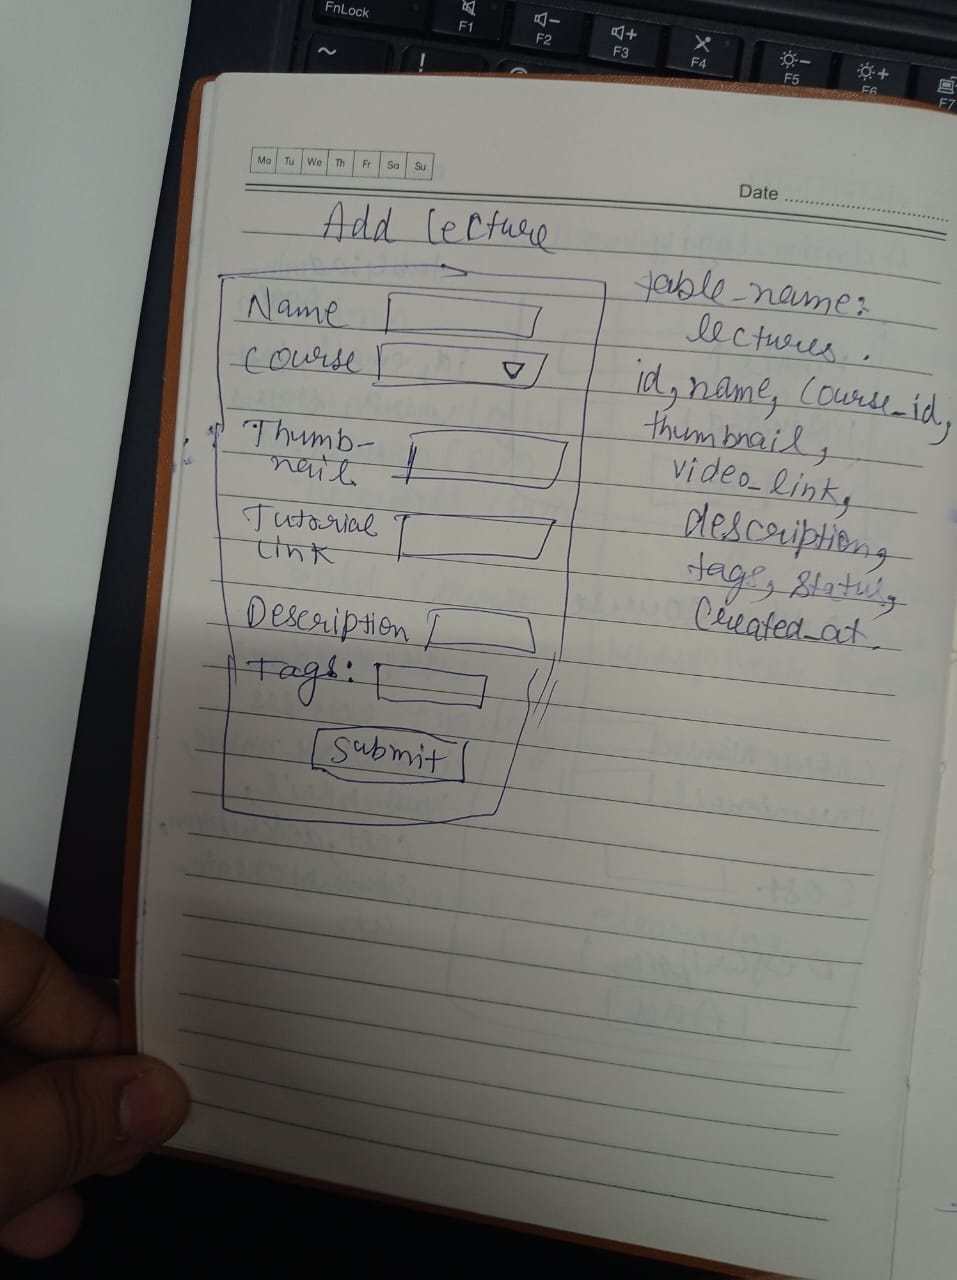 FnLock
F1
F2
F3
F4
F5
F6
F7
~
!
Mo Tu We Th Fr Sa Su
Date
Add lecture
Name
Course
Thumb-
nail
Tutorial
Link
Description
Tags:
Submit
table_name:
lectures.
id, name, Course_id,
thumbnail,
video_link,
description,
tags, status,
Created_at.